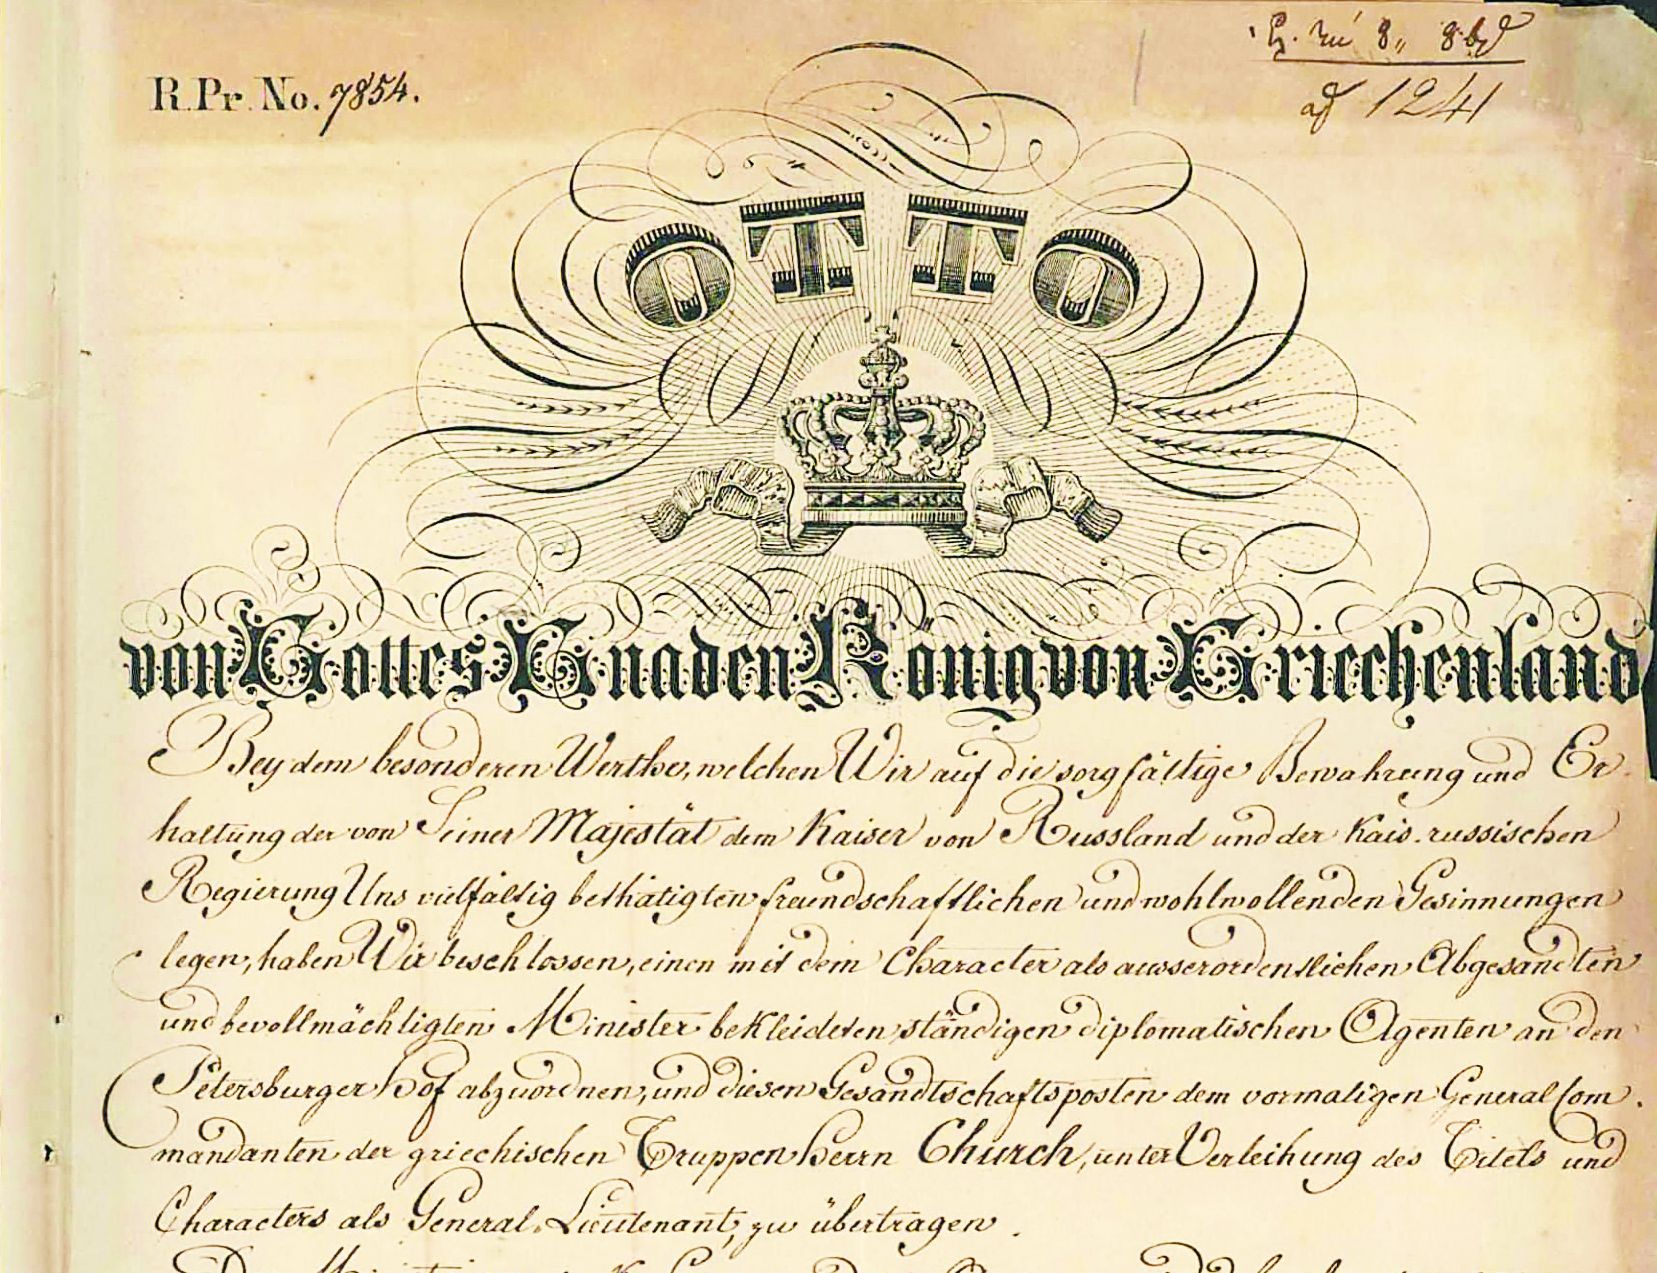 R. Pr. No. 7854.
ad 1241
OTTO
von Gottes Gnaden König von Griechenland
Bey dem besonderen Werthe, welchen Wir auf die sorgfältige Bewahrung und Er-
haltung der von Seiner Majestät dem Kaiser von Russland und der Kais. russischen
Regierung Uns vielfältig bethätigten freundschaftlichen und wohlwollenden Gesinnungen
legen, haben Wir beschlossen, einen mit dem Character als ausserordentlichen Abgesandten
und bevollmächtigten Minister bekleideten, ständigen diplomatischen Agenten an den
Petersburger Hof abzuordnen, und diesen Gesandtschaftsposten dem vormaligen General Com-
mandanten der griechischen Truppen Herrn Church, unter Verleihung des Titels und
Characters als General-Lieutenant, zu übertragen.